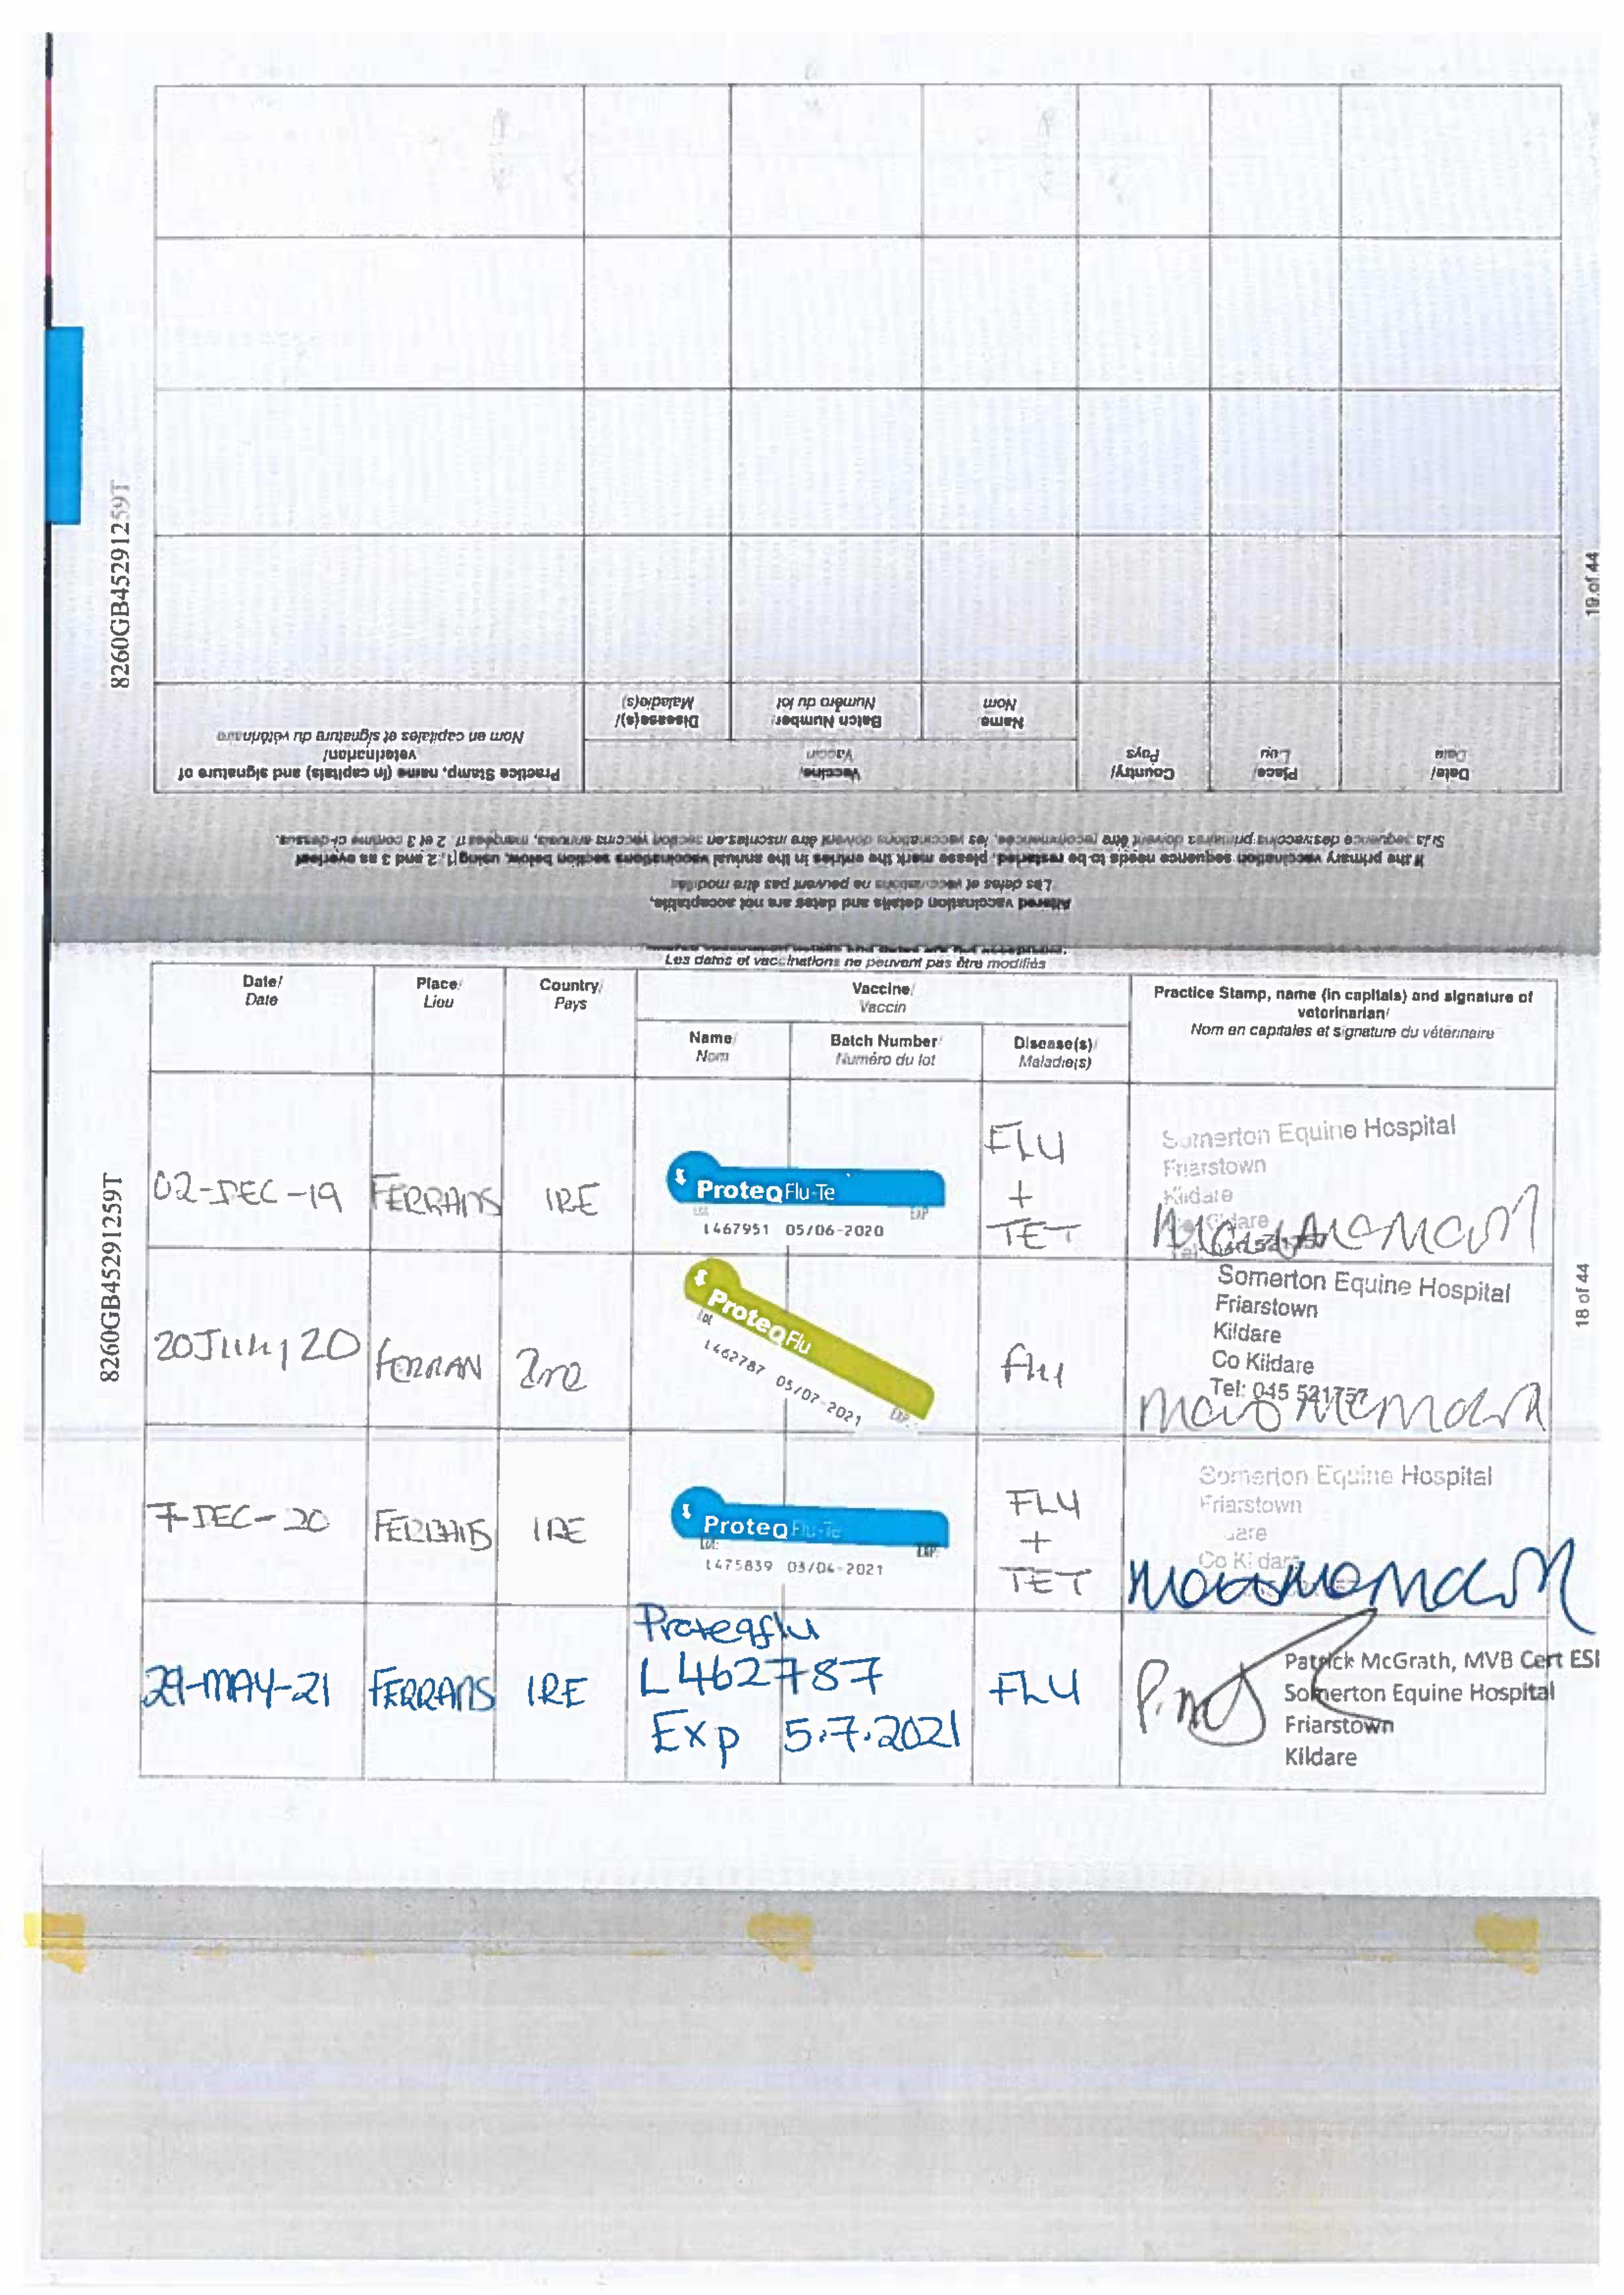 8260GB45291259T
19 of 44
Practice Stamp, name (in capitals) and signature of
veterinarian/
Nom en capitales et signature du vétérinaire
Vaccine/
Vaccin
Disease(s)/
Maladie(s)
Batch Number/
Numéro du lot
Name
Nom
Country/
Pays
Place/
Lieu
Date/
Date
Altered vaccination details and dates are not acceptable.
Les dates et vaccinations ne peuvent pas être modifiés
If the primary vaccination sequence needs to be restarted, please mark the entries in the annual vaccinations section below, using 1, 2 and 3 as overleaf
Si la séquence des vaccins primaires doivent être recommencées, les vaccinations doivent être inscrites en section vaccins annuels, marquées 1, 2 et 3 comme ci-dessus.
Les dates et vaccinations ne peuvent pas être modifiés
8260GB45291259T
18 of 44
Date/
Date
Place/
Lieu
Country/
Pays
Vaccine/
Vaccin
Name/
Nom
Batch Number/
Numéro du lot
Disease(s)/
Maladie(s)
Practice Stamp, name (in capitals) and signature of
veterinarian/
Nom en capitales et signature du vétérinaire
02-DEC-19 FERRANS IRE
ProteqFlu-Te
LOT EXP
L467951 05/06-2020
FLU
+
TET
Somerton Equine Hospital
Friarstown
Kildare
Co Kildare
20 July 20 FERRAN Ire
ProteqFlu
Lot EXP
L462787 05/07-2021
Flu
Somerton Equine Hospital
Friarstown
Kildare
Co Kildare
Tel: 045 521757
7-DEC-20 FERRANS IRE
ProteqFlu-Te
Lot: EXP:
L475839 03/04-2021
FLU
+
TET
Somerton Equine Hospital
Friarstown
Co Kildare
29-MAY-21 FERRANS IRE
Proteqflu
L462787
Exp 5.7.2021
FLU
Patrick McGrath, MVB Cert ESI
Somerton Equine Hospital
Friarstown
Kildare